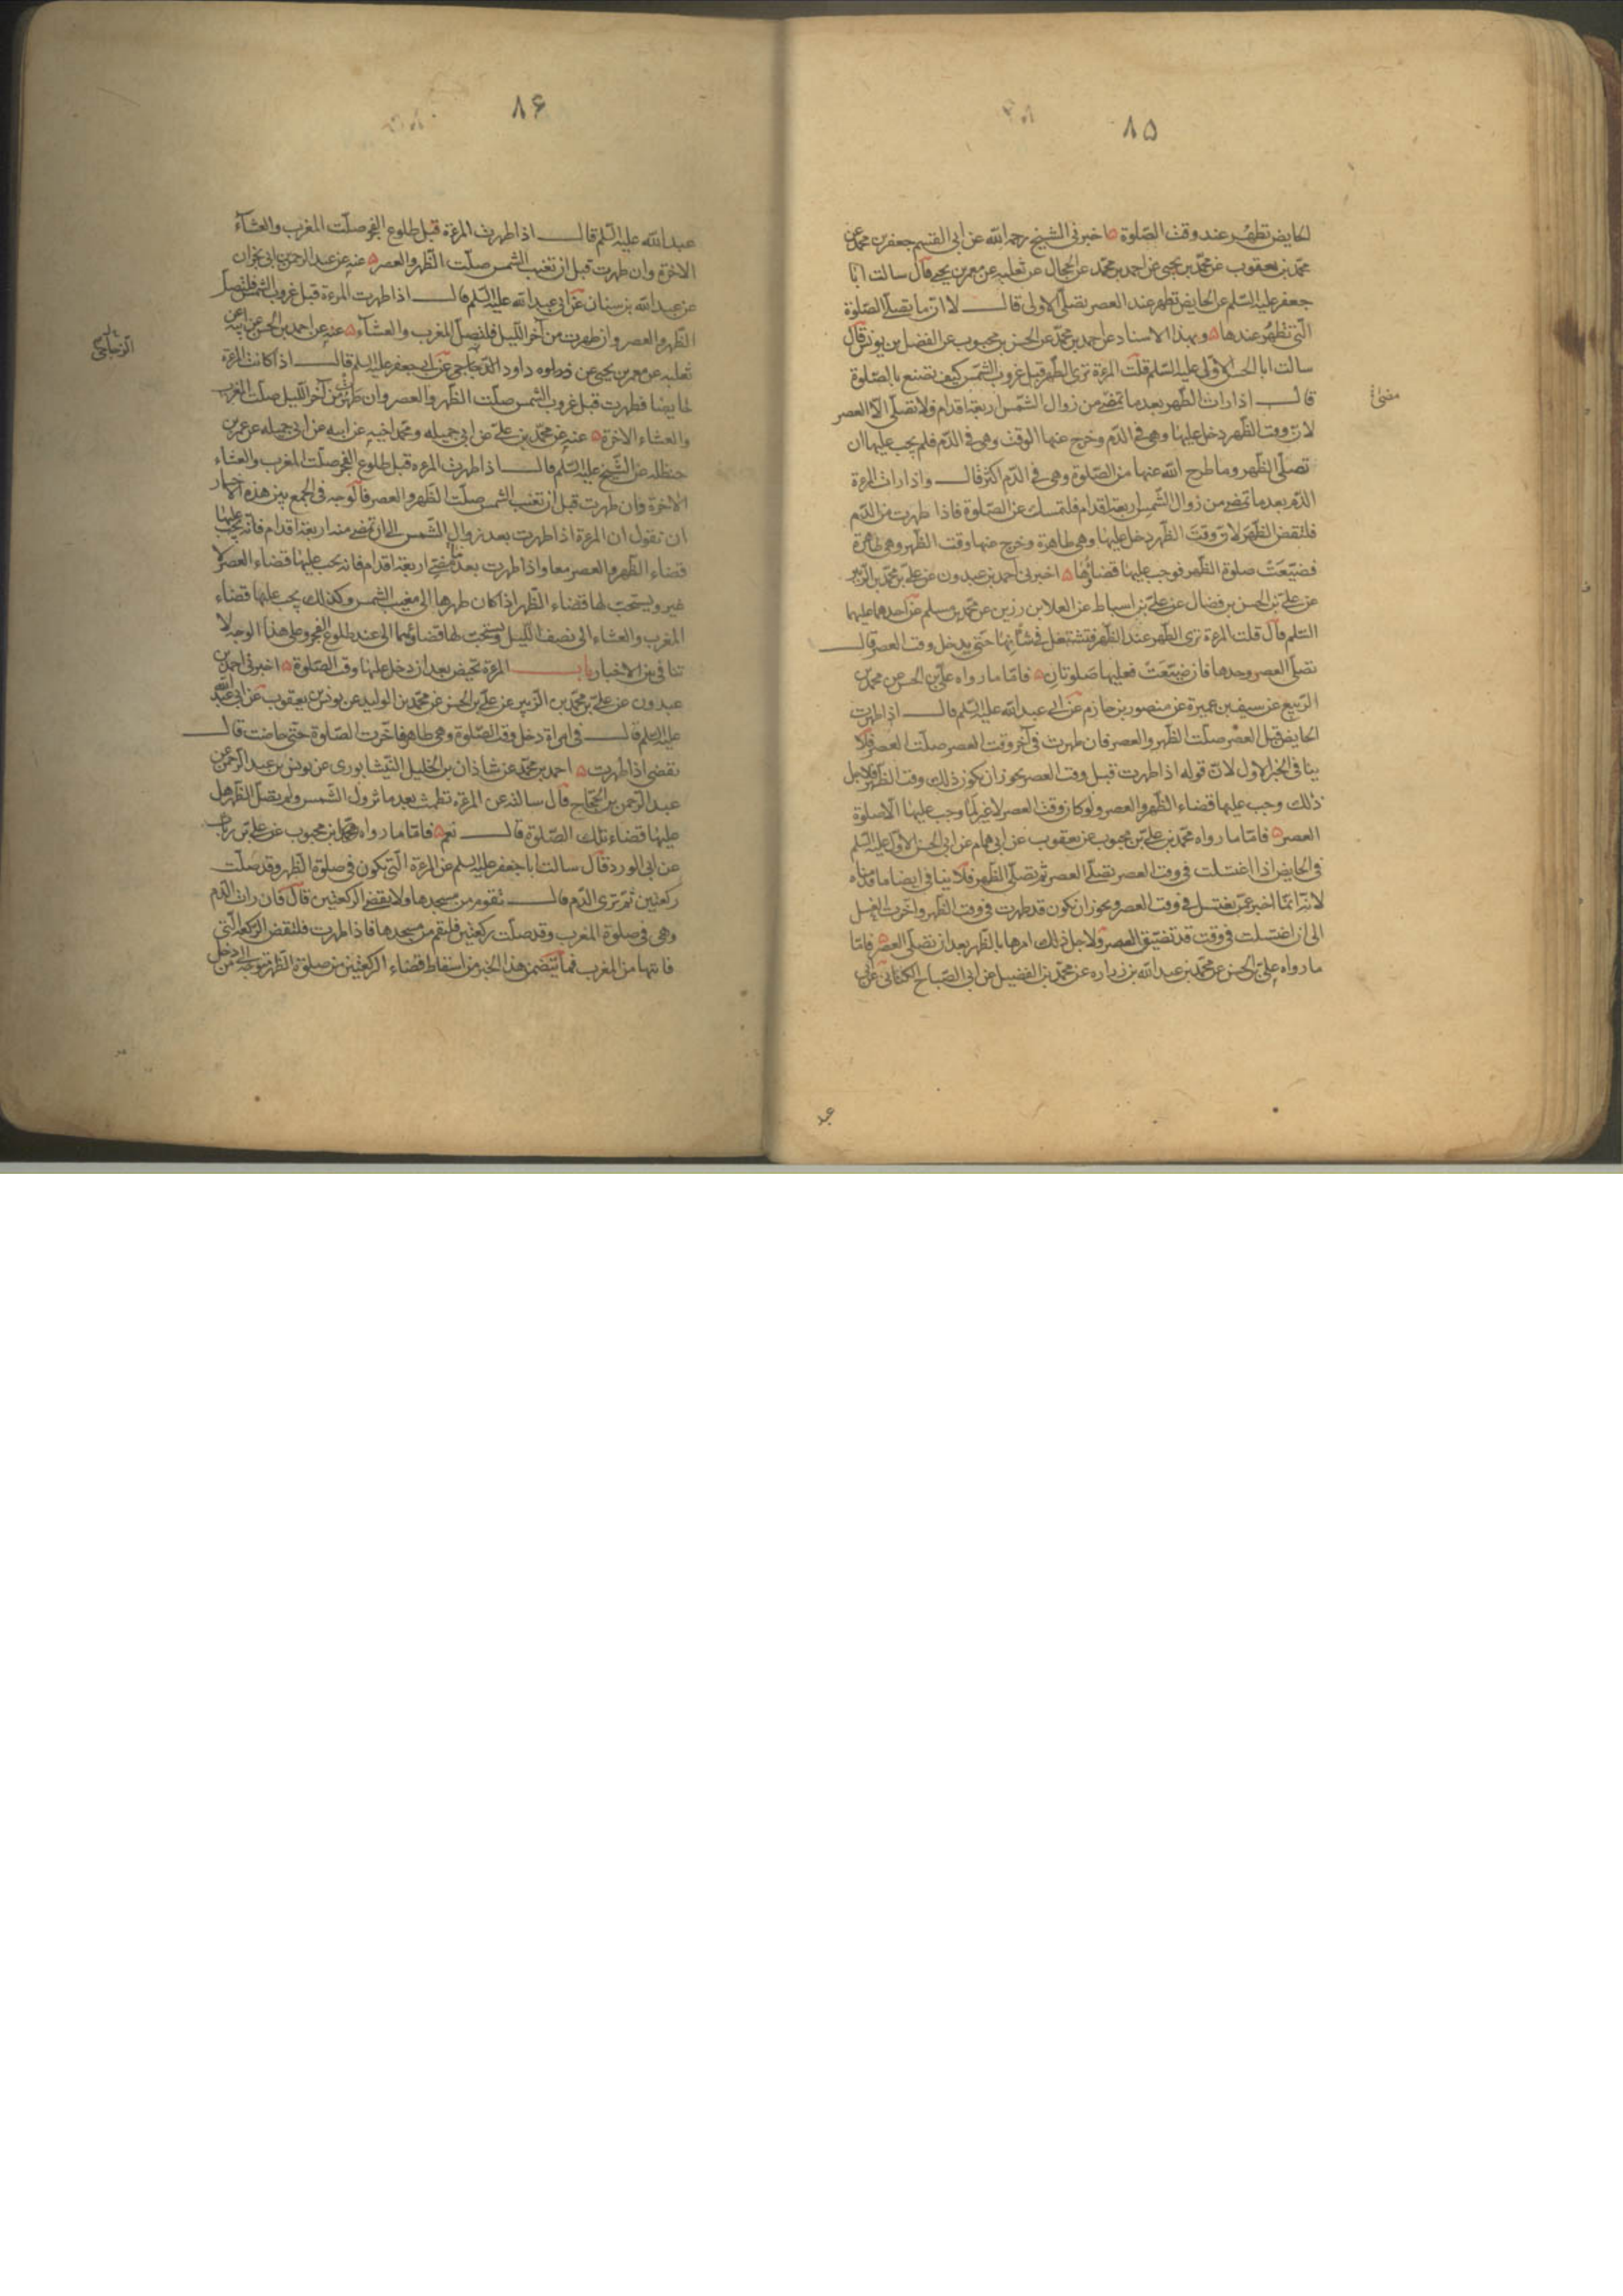 ٨٥
الحايض تطهر عند وقت الصلوة اخبرنى الشيخ رحمه الله عن ابى القسم جعفر بن محمد عن
محمد بن يعقوب عن محمد بن يحيى عن احمد بن محمد عن الحجال عن ثعلبه عن معمر بن يحيى قال سالت ابا
جعفر عليه السلم عن الحايض تطهر عند العصر تصلى الاولى قال لا انما تصلى الصلوة
التى تطهر عندها وبهذا الاسناد عن احمد بن محمد عن الحسن بن محبوب عن الفضل بن يونس قال
سالت ابا الحسن الاول عليه السلم قلت المرءة ترى الطهر قبل غروب الشمس كيف تصنع بالصلوة
قال اذا رات الطهر بعد ما تمضى من زوال الشمس اربعة اقدام فلا تصلى الا العصر
لان وقت الظهر دخل عليها وهى فى الدم وخرج عنها الوقت وهى فى الدم فلم يجب عليها ان
تصلى الظهر وما طرح الله عنها من الصلوة وهى فى الدم اكثر قال واذا رات المرءة
الدم بعد ما تمضى من زوال الشمس اربعة اقدام فلتمسك عن الصلوة فاذا طهرت من الدم
فلتقض الظهر لان وقت الظهر دخل عليها وهى طاهرة وخرج عنها وقت الظهر وهى طاهرة
فضيعت صلوة الظهر فوجب عليها قضاؤها اخبرنى احمد بن عبدون عن على بن محمد بن الزبير
عن على بن الحسن بن فضال عن على بن اسباط عن العلا بن رزين عن محمد بن مسلم عن احدهما عليهما
السلم قال قلت المرءة ترى الطهر عند الظهر فتشتغل فى شانها حتى يدخل وقت العصر قال
تصلى العصر وحدها فان ضيعت فعليها صلوتان فاما ما رواه على بن الحسن عن محمد بن
الربيع عن سيف بن عميرة عن منصور بن حازم عن ابى عبد الله عليه السلم قال اذا طهرت
الحايض قبل العصر صلت الظهر والعصر فان طهرت فى آخر وقت العصر صلت العصر فلا
ينافى الخبر الاول لان قوله اذا طهرت قبل وقت العصر يجوز ان يكون ذلك وقت الظهر فلاجل
ذلك وجب عليها قضاء الظهر والعصر ولو كان وقت العصر لا غير لما وجب عليها الا صلوة
العصر فاما ما رواه محمد بن على بن محبوب عن يعقوب عن ابى همام عن ابى الحسن الاول عليه السلم
فى الحايض اذا اغتسلت فى وقت العصر تصلى العصر ثم تصلى الظهر فلا ينافى ايضا ما قدمناه
لانه انما اخبر عمن يغتسل فى وقت العصر ويجوز ان تكون قد طهرت فى وقت الظهر واخرت الغسل
الى ان اغتسلت فى وقت قد تضيق العصر ولاجل ذلك امرها بالظهر بعد ان تصلى العصر فاما
ما رواه على بن الحسن عن محمد بن عبد الله بن زراره عن محمد بن الفضيل عن ابى الصباح الكنانى عن ابى
٨۶
عبد الله عليه السلم قال اذا طهرت المرءة قبل طلوع الفجر صلت المغرب والعشاء
الاخرة وان طهرت قبل ان تغيب الشمس صلت الظهر والعصر عنه عن عبد الرحمن بن ابى نجران
عن عبد الله بن سنان عن ابى عبد الله عليه السلم قال اذا طهرت المرءة قبل غروب الشمس فلتصل
الظهر والعصر وان طهرت من آخر الليل فلتصل المغرب والعشاء عنه عن احمد بن الحسن عن ابيه عن
ثعلبه عن معمر بن يحيى عن داود الدجاجى عن ابى جعفر عليه السلم قال اذا كانت المرءة
حايضا فطهرت قبل غروب الشمس صلت الظهر والعصر وان طهرت من آخر الليل صلت المغرب
والعشاء الاخرة عنه عن محمد بن على عن ابى جميله ومحمد اخيه عن ابيه عن ابى جميله عن عمر بن
حنظله عن الشيخ عليه السلم قال اذا طهرت المرءه قبل طلوع الفجر صلت المغرب والعشاء
الاخرة وان طهرت قبل ان تغيب الشمس صلت الظهر والعصر فالوجه فى الجمع بين هذه الاخبار
ان نقول ان المرءة اذا طهرت بعد زوال الشمس الى ان تمضى منه اربعة اقدام فانه يجب عليها
قضاء الظهر والعصر معا واذا طهرت بعد ما تمضى اربعة اقدام فانه يجب عليها قضاء العصر لا
غير ويستحب لها قضاء الظهر اذا كان طهرها الى مغيب الشمس وكذلك يجب عليها قضاء
المغرب والعشاء الى نصف الليل ويستحب لها قضاؤهما الى عند طلوع الفجر وعلى هذا الوجه لا
تنافى بين الاخبار باب المرءة تحيض بعد ان دخل عليها وقت الصلوة اخبرنى احمد بن
عبدون عن على بن محمد بن الزبير عن على بن الحسن عن محمد بن الوليد عن يونس بن يعقوب عن ابى عبد الله
عليه السلم قال فى امراة دخل وقت الصلوة وهى طاهر فاخرت الصلوة حتى حاضت قال
تقضى اذا طهرت احمد بن محمد عن شاذان بن الخليل النيشابورى عن يونس بن عبد الرحمن عن
عبد الرحمن بن الحجاج قال سالته عن المرءة تطمث بعد ما تزول الشمس ولم تصل الظهر هل
عليها قضاء تلك الصلوة قال نعم فاما ما رواه ابن محبوب عن على بن رئاب
عن ابى الورد قال سالت ابا جعفر عليه السلم عن المرءة التى تكون فى صلوة الظهر وقد صلت
ركعتين ثم ترى الدم قال تقوم من مسجدها ولا تقضى الركعتين قال فان رات الدم
وهى فى صلوة المغرب وقد صلت ركعتين فلتقم من مسجدها فاذا طهرت فلتقض الركعة التى
فاتتها من المغرب فما يتضمن هذا الخبر من اسقاط قضاء الركعتين من صلوة الظهر متوجه الى من دخل